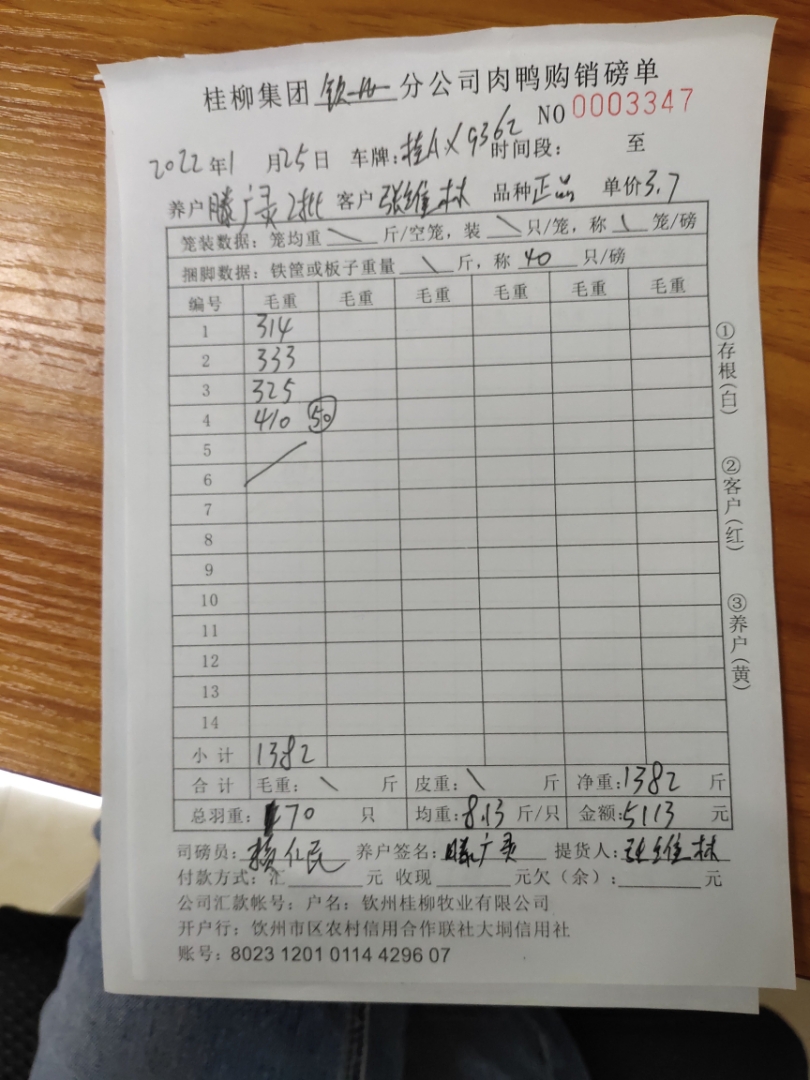 桂柳集团 钦州 分公司肉鸭购销磅单
NO 0003347
2022年1月25日 车牌：桂AX9362 时间段： 至
养户 滕广灵2批 客户 张维林 品种 正品 单价3.7
笼装数据：笼均重 \ 斤/空笼，装 \ 只/笼，称 \ 笼/磅
捆脚数据：铁筐或板子重量 \ 斤，称 40 只/磅
编号 毛重 毛重 毛重 毛重 毛重 毛重
1 314
2 333
3 325
4 410 50
5
6
7
8
9
10
11
12
13
14
小计 1382
合计 毛重： \ 斤 皮重： \ 斤 净重：1382 斤
总羽重： 170 只 均重：8.13 斤/只 金额：5113 元
司磅员： 仁民 养户签名：滕广灵 提货人：张维林
付款方式：汇 元 收现 元欠（余）： 元
公司汇款帐号：户名：钦州桂柳牧业有限公司
开户行：钦州市区农村信用合作联社大垌信用社
账号：8023 1201 0114 4296 07
①存根（白）
②客户（红）
③养户（黄）